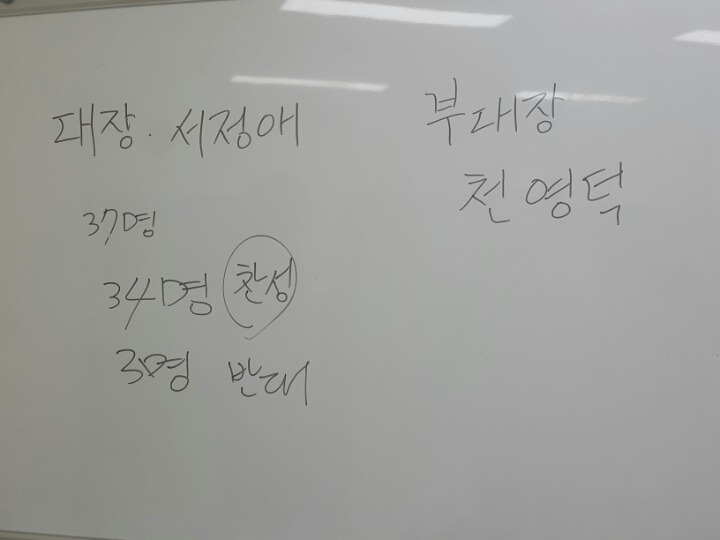 대장. 서정애
37명
34명 찬성
3명 반대
부대장
천영덕